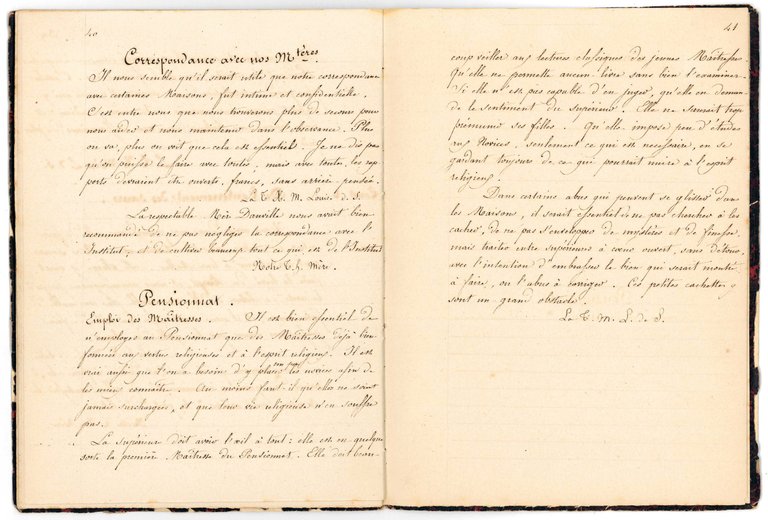 40
Correspondance avec nos M.tères
Il nous semble qu'il serait utile que notre correspondance
avec certaines Maisons, fut intime et confidentielle.
C'est entre nous que nous trouverons plus de secours pour
nous aider et nous maintenir dans l'observance. Plus
on va, plus on voit que cela est essentiel. Je ne dis pas
qu'on puisse le faire avec toutes, mais avec toutes, les rap-
ports devraient être ouverts, francs, sans arrière pensée.
L. T. H. M. Louise de S.
La respectable Mère Danville nous avait bien
recommandé de ne pas négliger la correspondance avec l'
Institut, et de cultiver beaucoup tout ce qui est de l'Institut
Notre T. h. Mère.
Pensionnat.
Emploi des Maîtresses. Il est bien essentiel de
n'employer au Pensionnat que des Maîtresses déjà bien
formées aux vertus religieuses et à l'esprit religieux. Il est
vrai aussi que l'on a besoin d'y placer les novices afin de
les mieux connaître. Au moins faut-il qu'elles ne soient
jamais surchargées, et que leur vie religieuse n'en souffre
pas.
La supérieure doit avoir l'œil à tout : elle est en quelque
sorte la première Maîtresse du Pensionnat. Elle doit beau-
41
coup veiller aux lectures classiques des jeunes Maîtresses
Qu'elle ne permette aucun livre sans bien l'examiner.
Si elle n'est pas capable d'en juger, qu'elle en deman-
de le sentiment du supérieur. Elle ne saurait trop
prémunir ses filles. Qu'elle impose peu d'études
aux Novices, seulement ce qui est nécessaire, en se
gardant toujours de ce qui pourrait nuire à l'esprit
religieux.
Dans certains abus qui peuvent se glisser dans
les Maisons, il serait essentiel de ne pas chercher à les
cacher, de ne pas s'envelopper de mystères et de finesse,
mais traiter entre supérieures à cœur ouvert, sans détour,
avec l'intention d'embrasser le bien qui serait montré
à faire, ou l'abus à corriger. Ces petites cachettes y
sont un grand obstacle.
La T. M. L. de S.